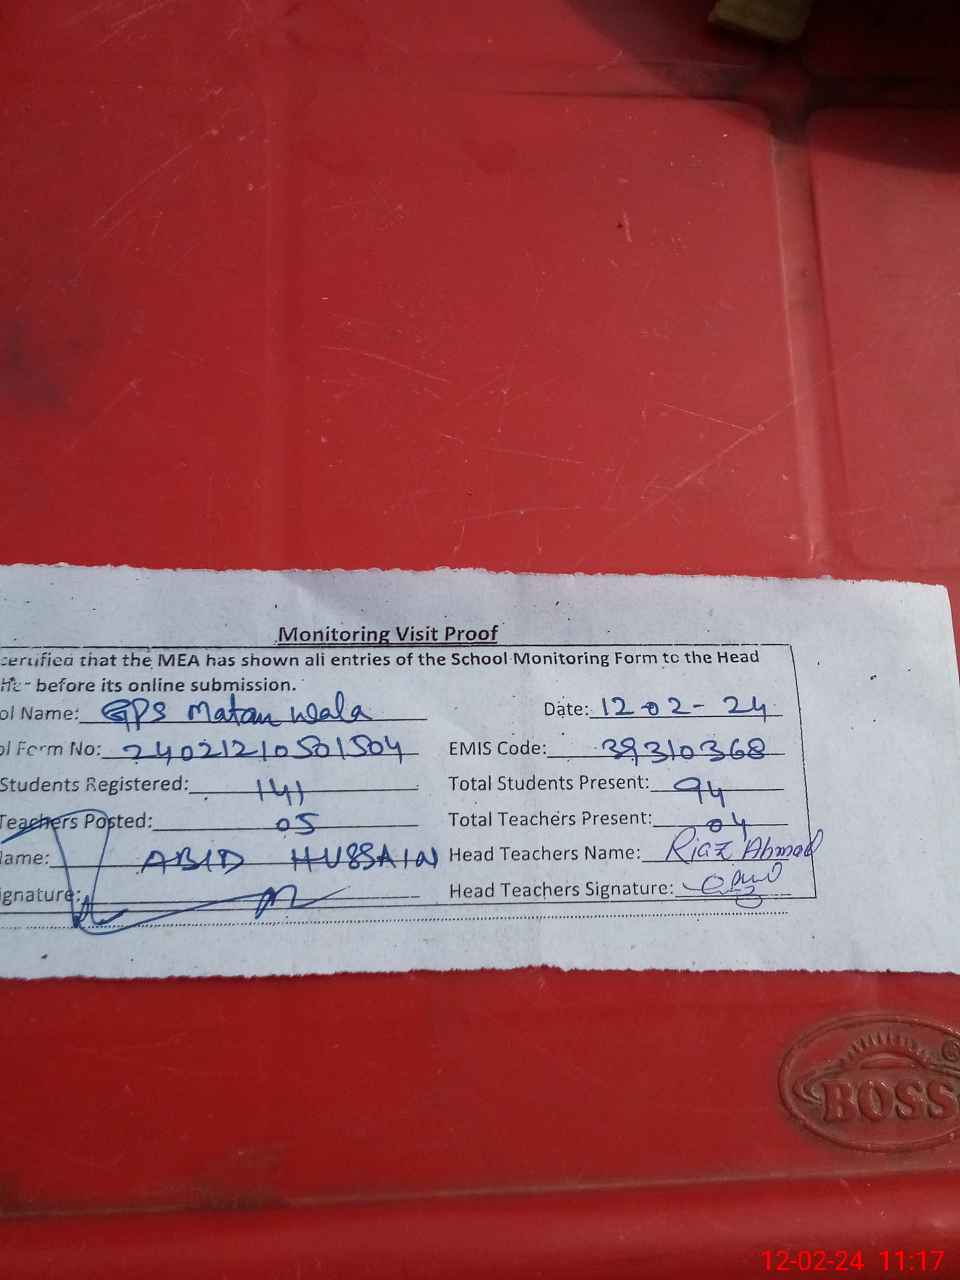 Monitoring Visit Proof
certified that the MEA has shown all entries of the School Monitoring Form to the Head
before its online submission.
ol Name: GPS Matan Wala Date: 12-02-24
ol Form No: 24021210501504 EMIS Code: 39310368
Students Registered: 141 Total Students Present: 94
Teachers Posted: 05 Total Teachers Present: 04
ame: ABID HUSSAIN Head Teachers Name: Riaz Ahmad
ignature: Head Teachers Signature:
BOSS
12-02-24 11:17